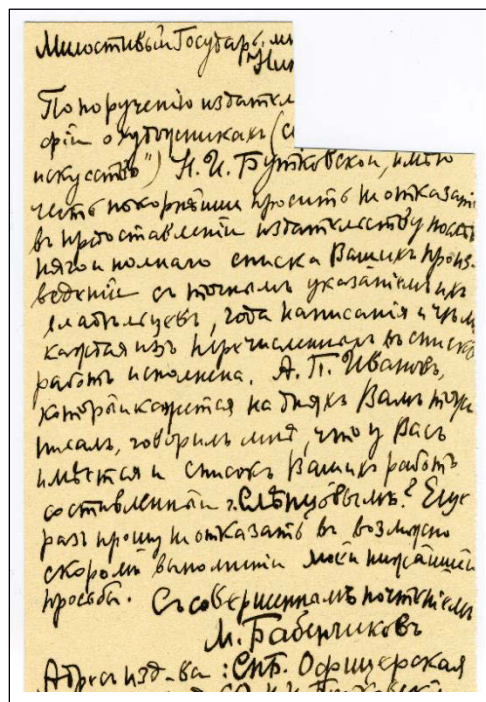 Милостивый Государь, ми
Ник
По порученію издател
фій о художникахъ (с
искусство") Н. И. Бутковской, имѣю
честь покорнѣйше просить не отказать
въ предоставленіи издательству
няго и полнаго списка Вашихъ произ-
веденій съ точнымъ указаніемъ ихъ
владѣльцевъ, года написанія и чѣмъ
каждая изъ перечисленныхъ въ спискѣ
работъ исполнена. А. П. Ивановъ,
который кажется на дняхъ Вамъ тоже
писалъ, говорилъ мнѣ, что у Васъ
имѣется и списокъ Вашихъ работъ
составленный г. Слѣпцовымъ? Еще
разъ прошу не отказать въ возможно
скоромъ выполненіи моей нижайшей
просьбы. Съ совершеннымъ почтеніемъ
М. Бабенчиковъ
Адресъ изд-ва: Спб. Офицерская
Н. И. Бутковской